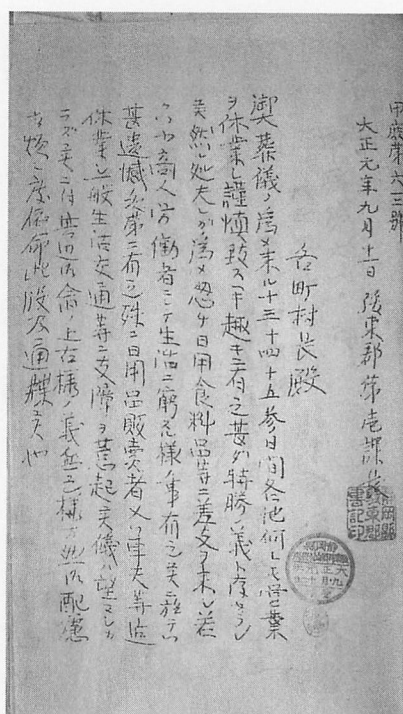 甲廳第六三號
大正元年九月十一日 駿東郡第壱部長
各町村長殿
御葬儀ノ為メ来ル十三十四十五参日間各地何レモ営業
ヲ休業シ謹慎致ス可ク趣キ有之甚タ特勝ノ義ト存
候然ル処夫レカ為メ恐ク日用食料品等ニ差支ヲ来シ若
クハ小商人労働者ニシテ生活ニ窮スル様ノ事有之候テハ
甚遺憾ノ次第ニ有之殊ニ日用品販売者又ハ車夫等迄
休業シ一般生活交通等ニ支障ヲ惹起候儀ハ望マシカ
ラズ候ニ付 上右様ノ義無之様 御配慮
相煩シ度依命此段及通牒候也